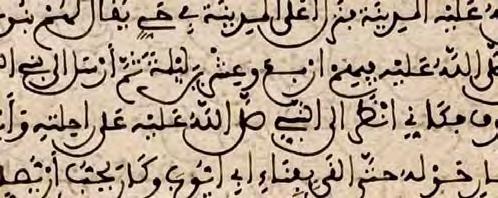 عليه المدينة فنزل اعلى المدينة في حي يقال لهم بنو
صلى الله عليه فيهم اربع وعشرين ليلة ثم أرسل الى بني
فكاني انظر الى النبي صلى الله عليه على راحلته
حوله حتى القى بفناء ابي ايوب وكان يحب أن يصلي